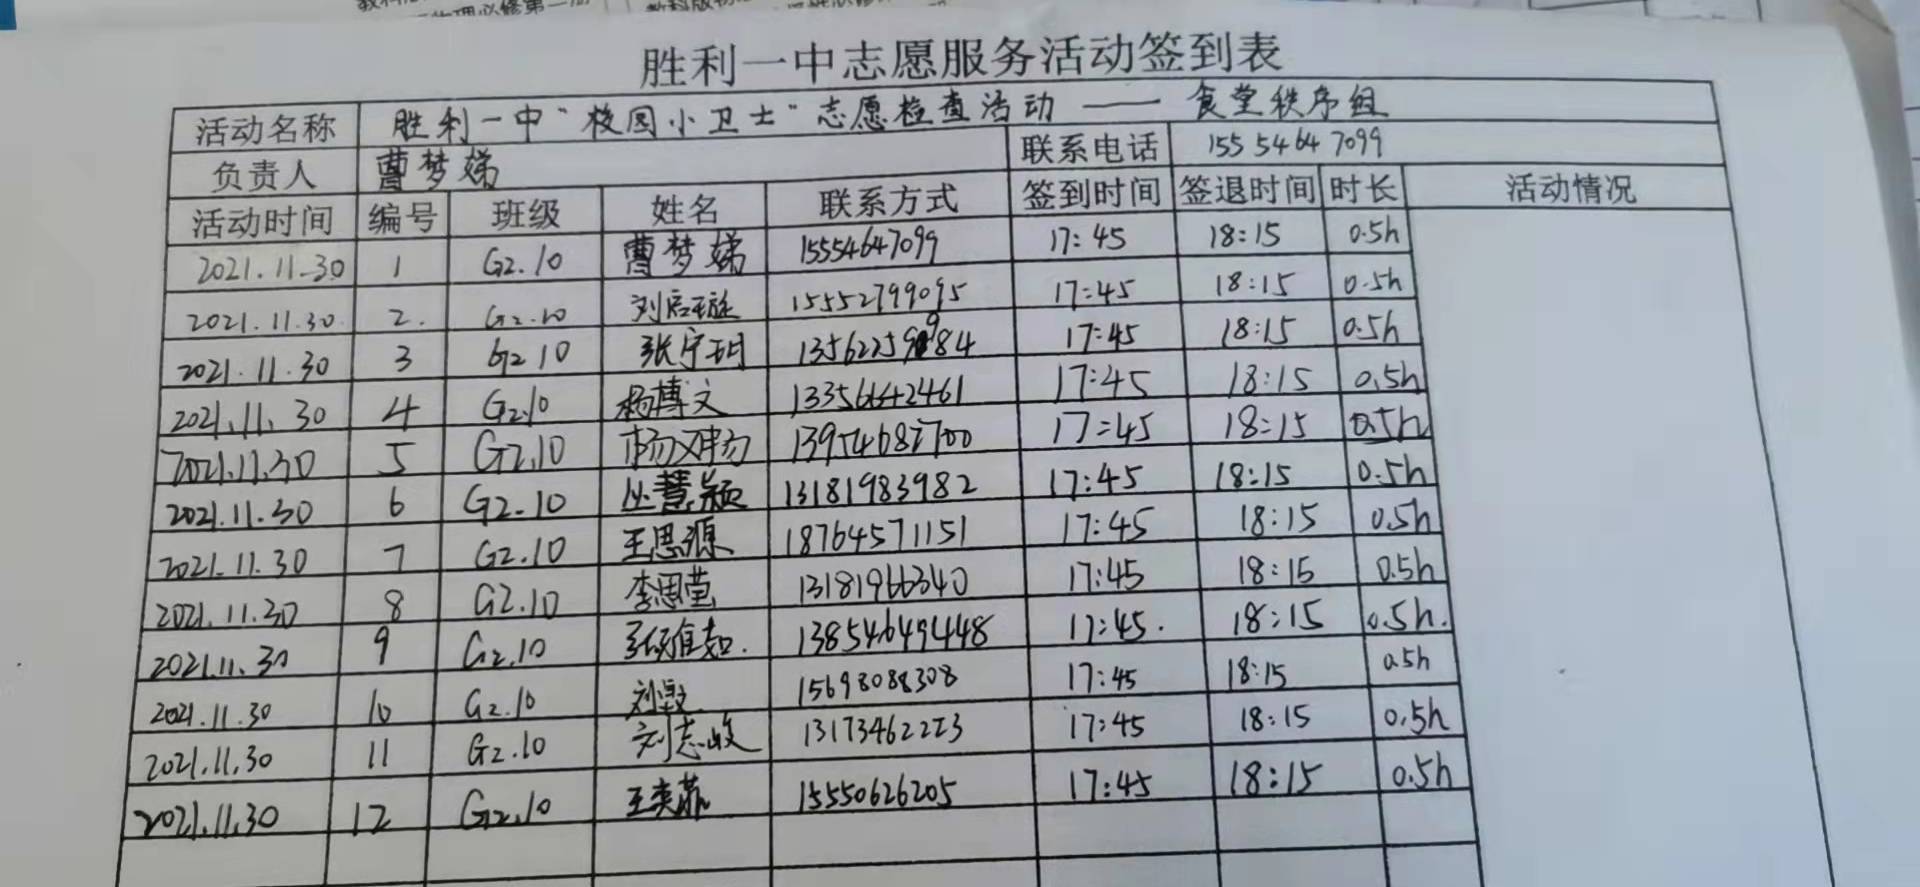 胜利一中志愿服务活动签到表
活动名称 胜利一中"校园小卫士"志愿检查活动 —— 食堂秩序组
负责人 曹梦娣 联系电话 15554647099
活动时间 编号 班级 姓名 联系方式 签到时间 签退时间 时长 活动情况
2021.11.30 1 G2.10 曹梦娣 15554647099 17:45 18:15 0.5h
2021.11.30. 2. G2.10 15552799095 17:45 18:15 0.5h
2021.11.30 3 G2 10 张宁玥 17:45 18:15 0.5h
2021.11.30 4 G2.10 杨博文 13356642461 17:45 18:15 0.5h
2021.11.30 5 G2.10 17:45 18:15 0.5h
2021.11.30 6 G2.10 丛慧颖 13181983982 17:45 18:15 0.5h
2021.11.30 7 G2.10 王思源 18764571151 17:45 18:15 0.5h
2021.11.30 8 G2.10 李思莹 13181966340 17:45 18:15 0.5h
2021.11.30 9 G2.10 13854649448 17:45. 18:15 0.5h.
2021.11.30 10 G2.10 15698088308 17:45 18:15 0.5h
2021.11.30 11 G2.10 刘志峻 17:45 18:15 0.5h
2021.11.30 12 G2.10 王奕菲 15550626205 17:45 18:15 0.5h